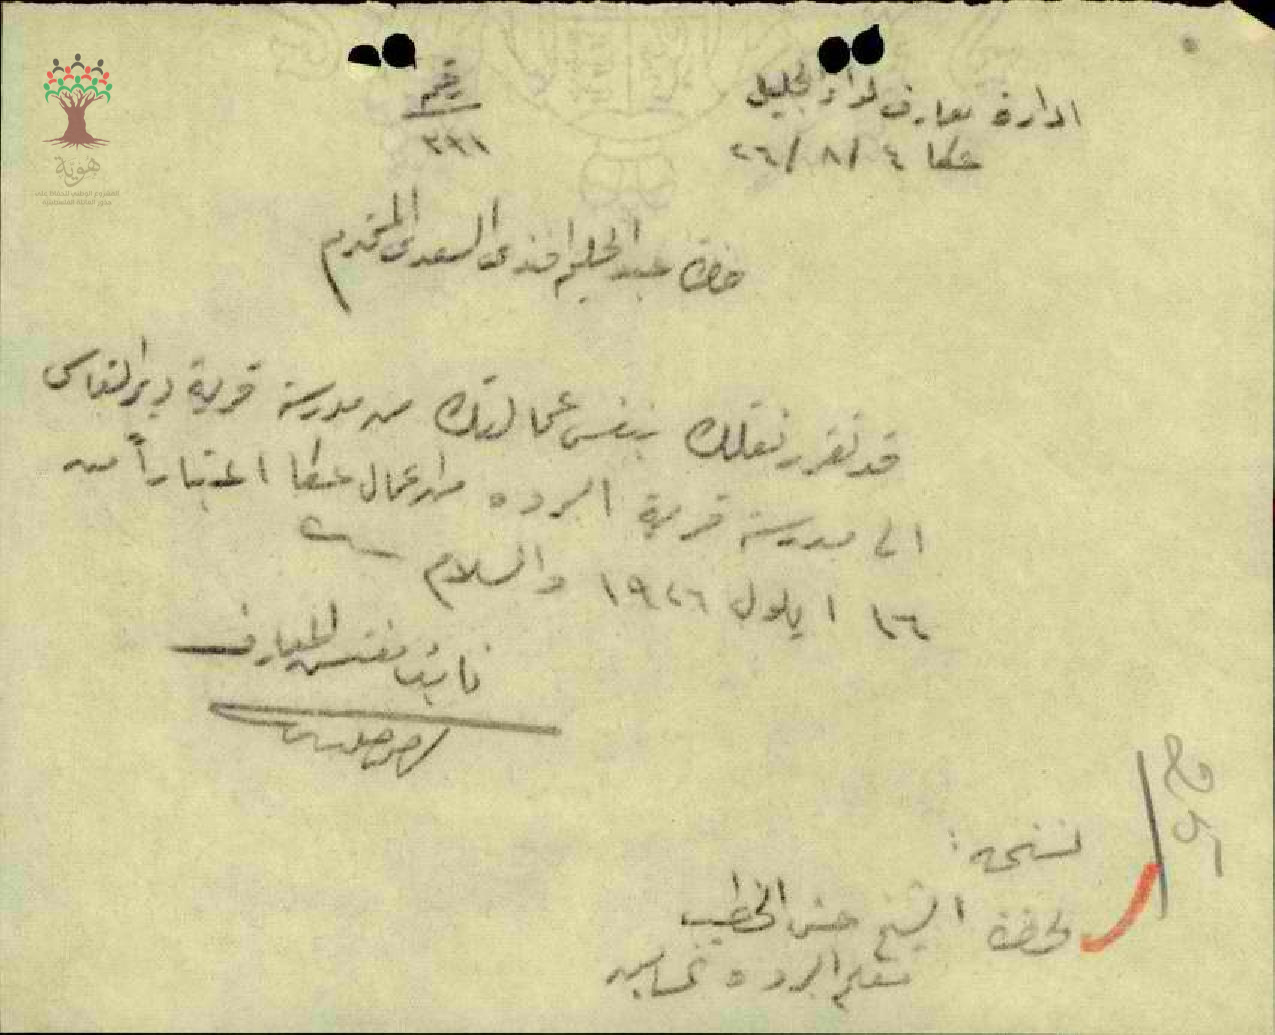 ادارة معارف لواء الجليل
عكا ٤ /٨ /٢٦
رقم
٣٢١
حضرة عبد الحليم افندي السعدي المحترم
قد تقرر نقلك بنفس عمالتك من مدرسة قرية دير القاسي
الى مدرسة قرية البروه من اعمال عكا اعتباراً من
١٦ ايلول ١٩٢٦ والسلام
نائب مفتش المعارف
نسخه :
لحضرة الشيخ حسن الخطيب
معلم البروه
هوية
المشروع الوطني للحفاظ على
جذور العائلة الفلسطينية